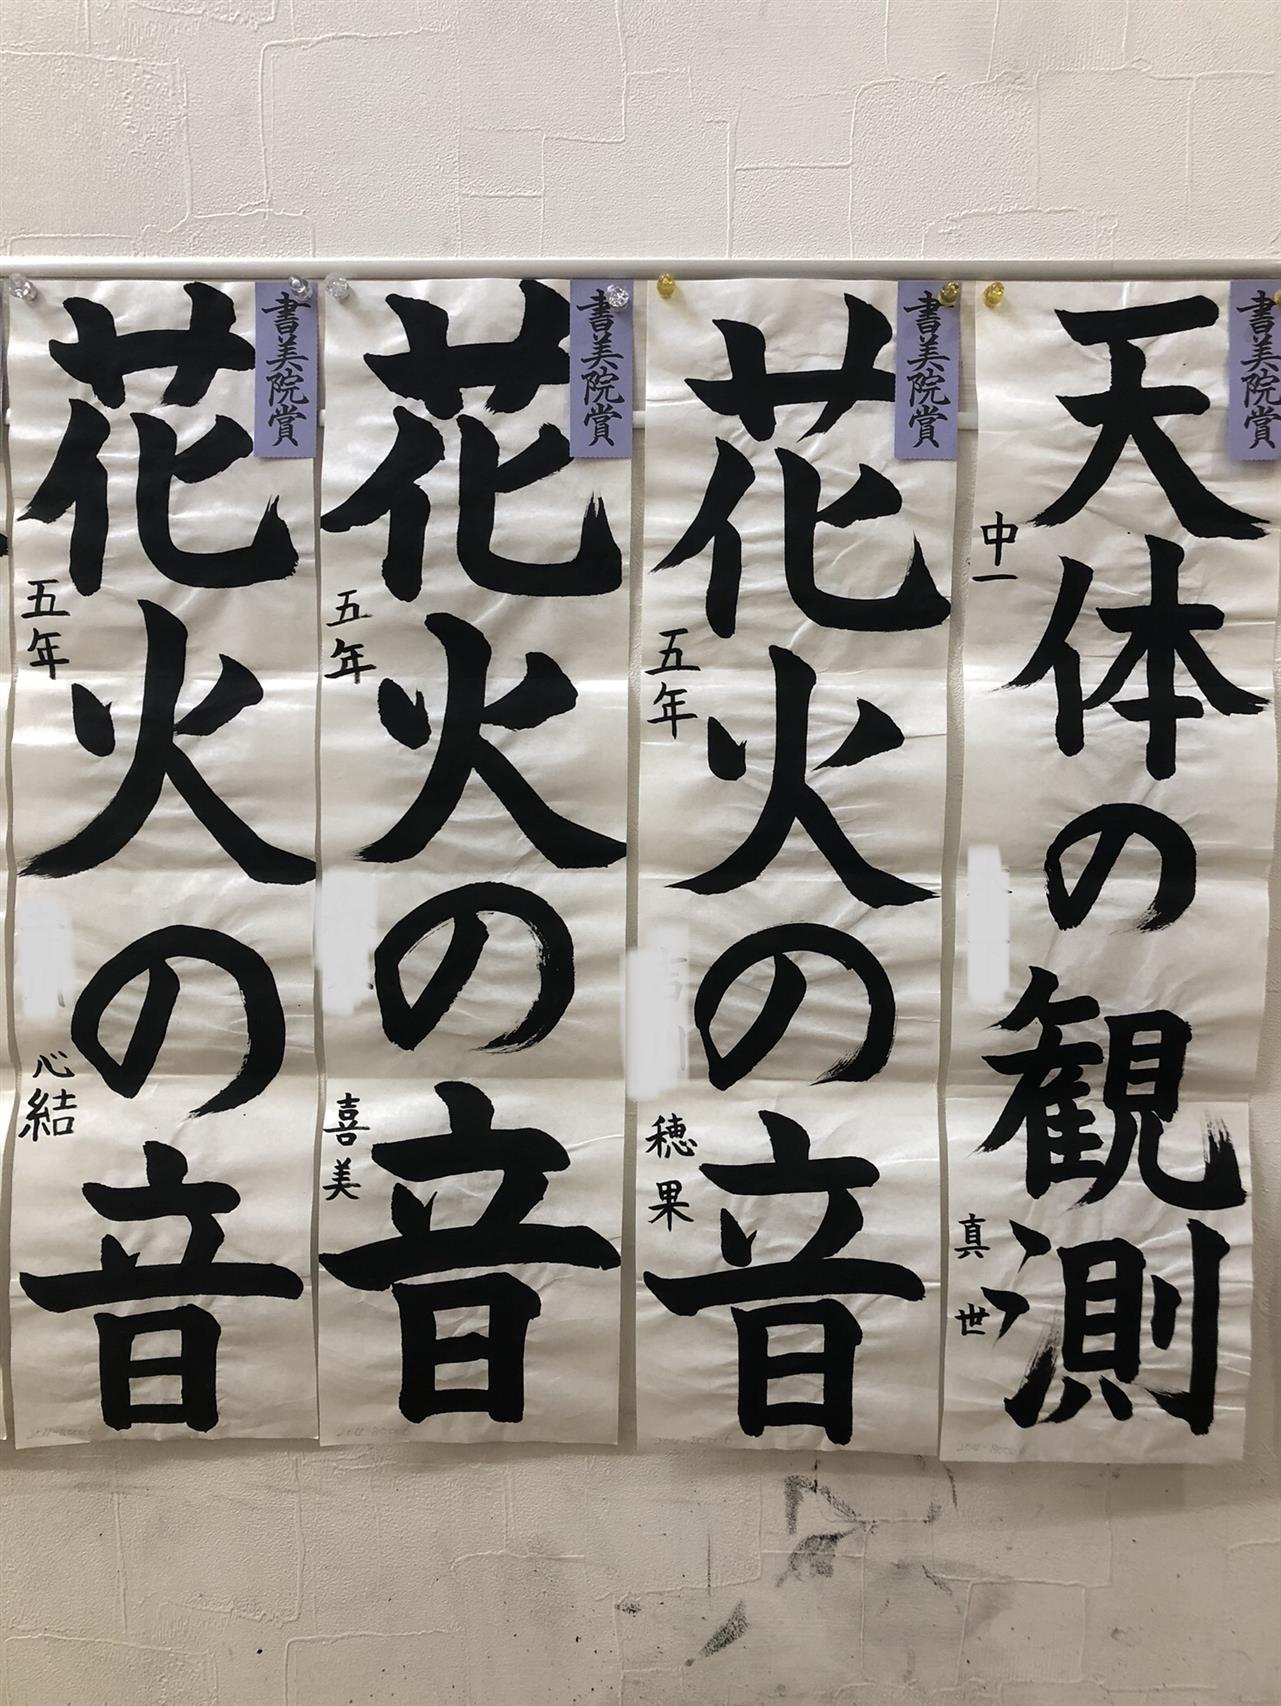 書美院賞
天体の観測
中一
真世
書美院賞
花火の音
五年
穂果
書美院賞
花火の音
五年
喜美
書美院賞
花火の音
五年
心結